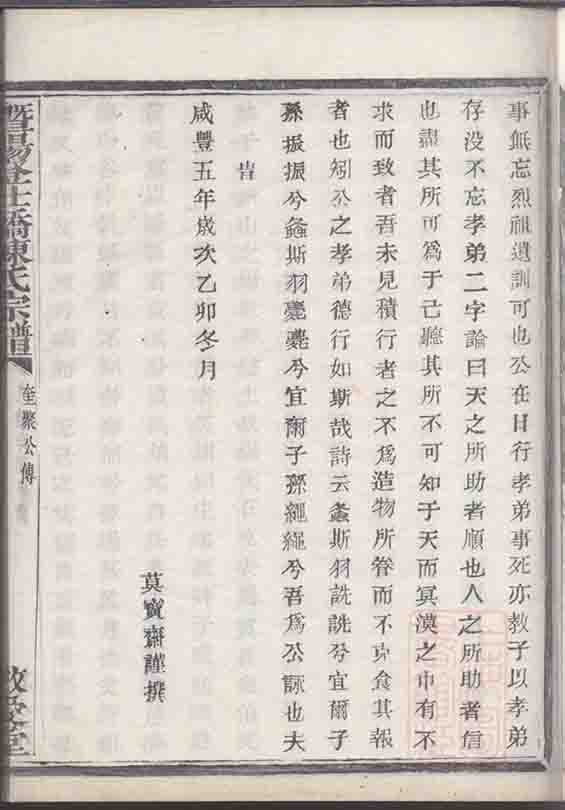 事無忘烈祖遺訓可也公在日行孝弟事死亦教子以孝弟
存没不忘孝弟二字論曰天之所助者順也人之所助者信
也盡其所可為于己聽其所不可知于天而冥漠之中有不
求而致者吾未見積行者之不為造物所眷而不克食其報
者也矧公之孝弟德行如斯哉詩云螽斯羽詵詵兮宜爾子
孫振振兮螽斯羽薨薨兮宜爾子孫繩繩兮吾為公詠也夫
旹
咸豐五年歲次乙卯冬月
莫寶齋謹撰
暨陽
橋陳氏宗譜
奎聚公傳